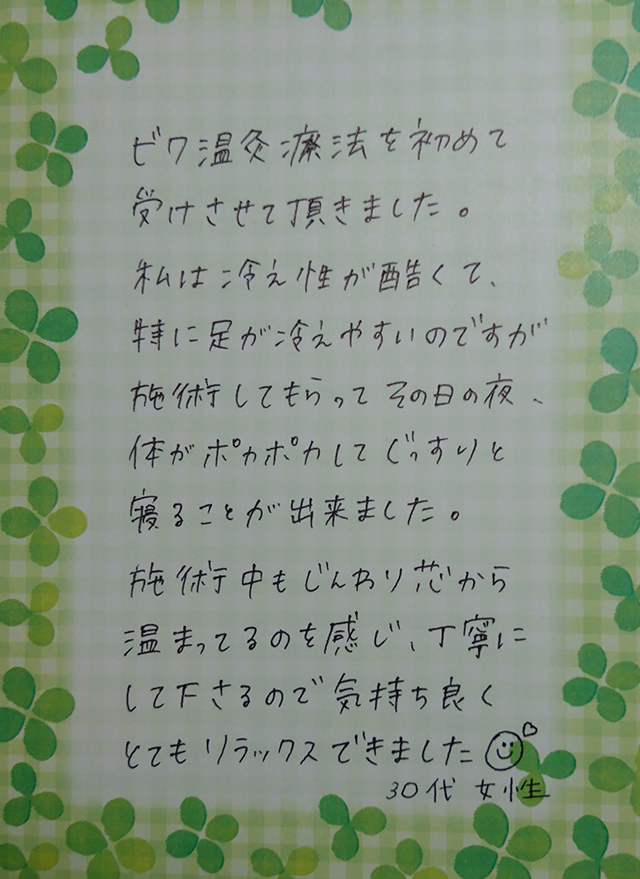 ビワ温灸療法を初めて
受けさせて頂きました。
私は冷え性が酷くて、
特に足が冷えやすいのですが
施術してもらってその日の夜、
体がポカポカしてぐっすりと
寝ることが出来ました。
施術中もじんわり芯から
温まってるのを感じ、丁寧に
して下さるので気持ち良く
とてもリラックスできました
30代 女性